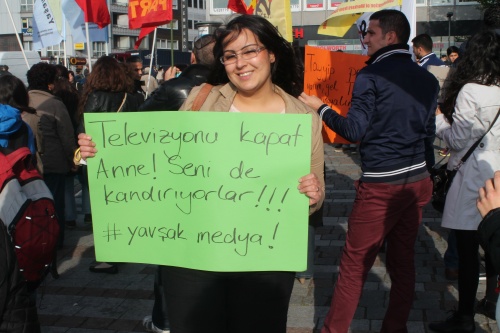 Televizyonu kapat
Anne! Seni de
kandırıyorlar!!!
# yavşak medya!
Tayyip